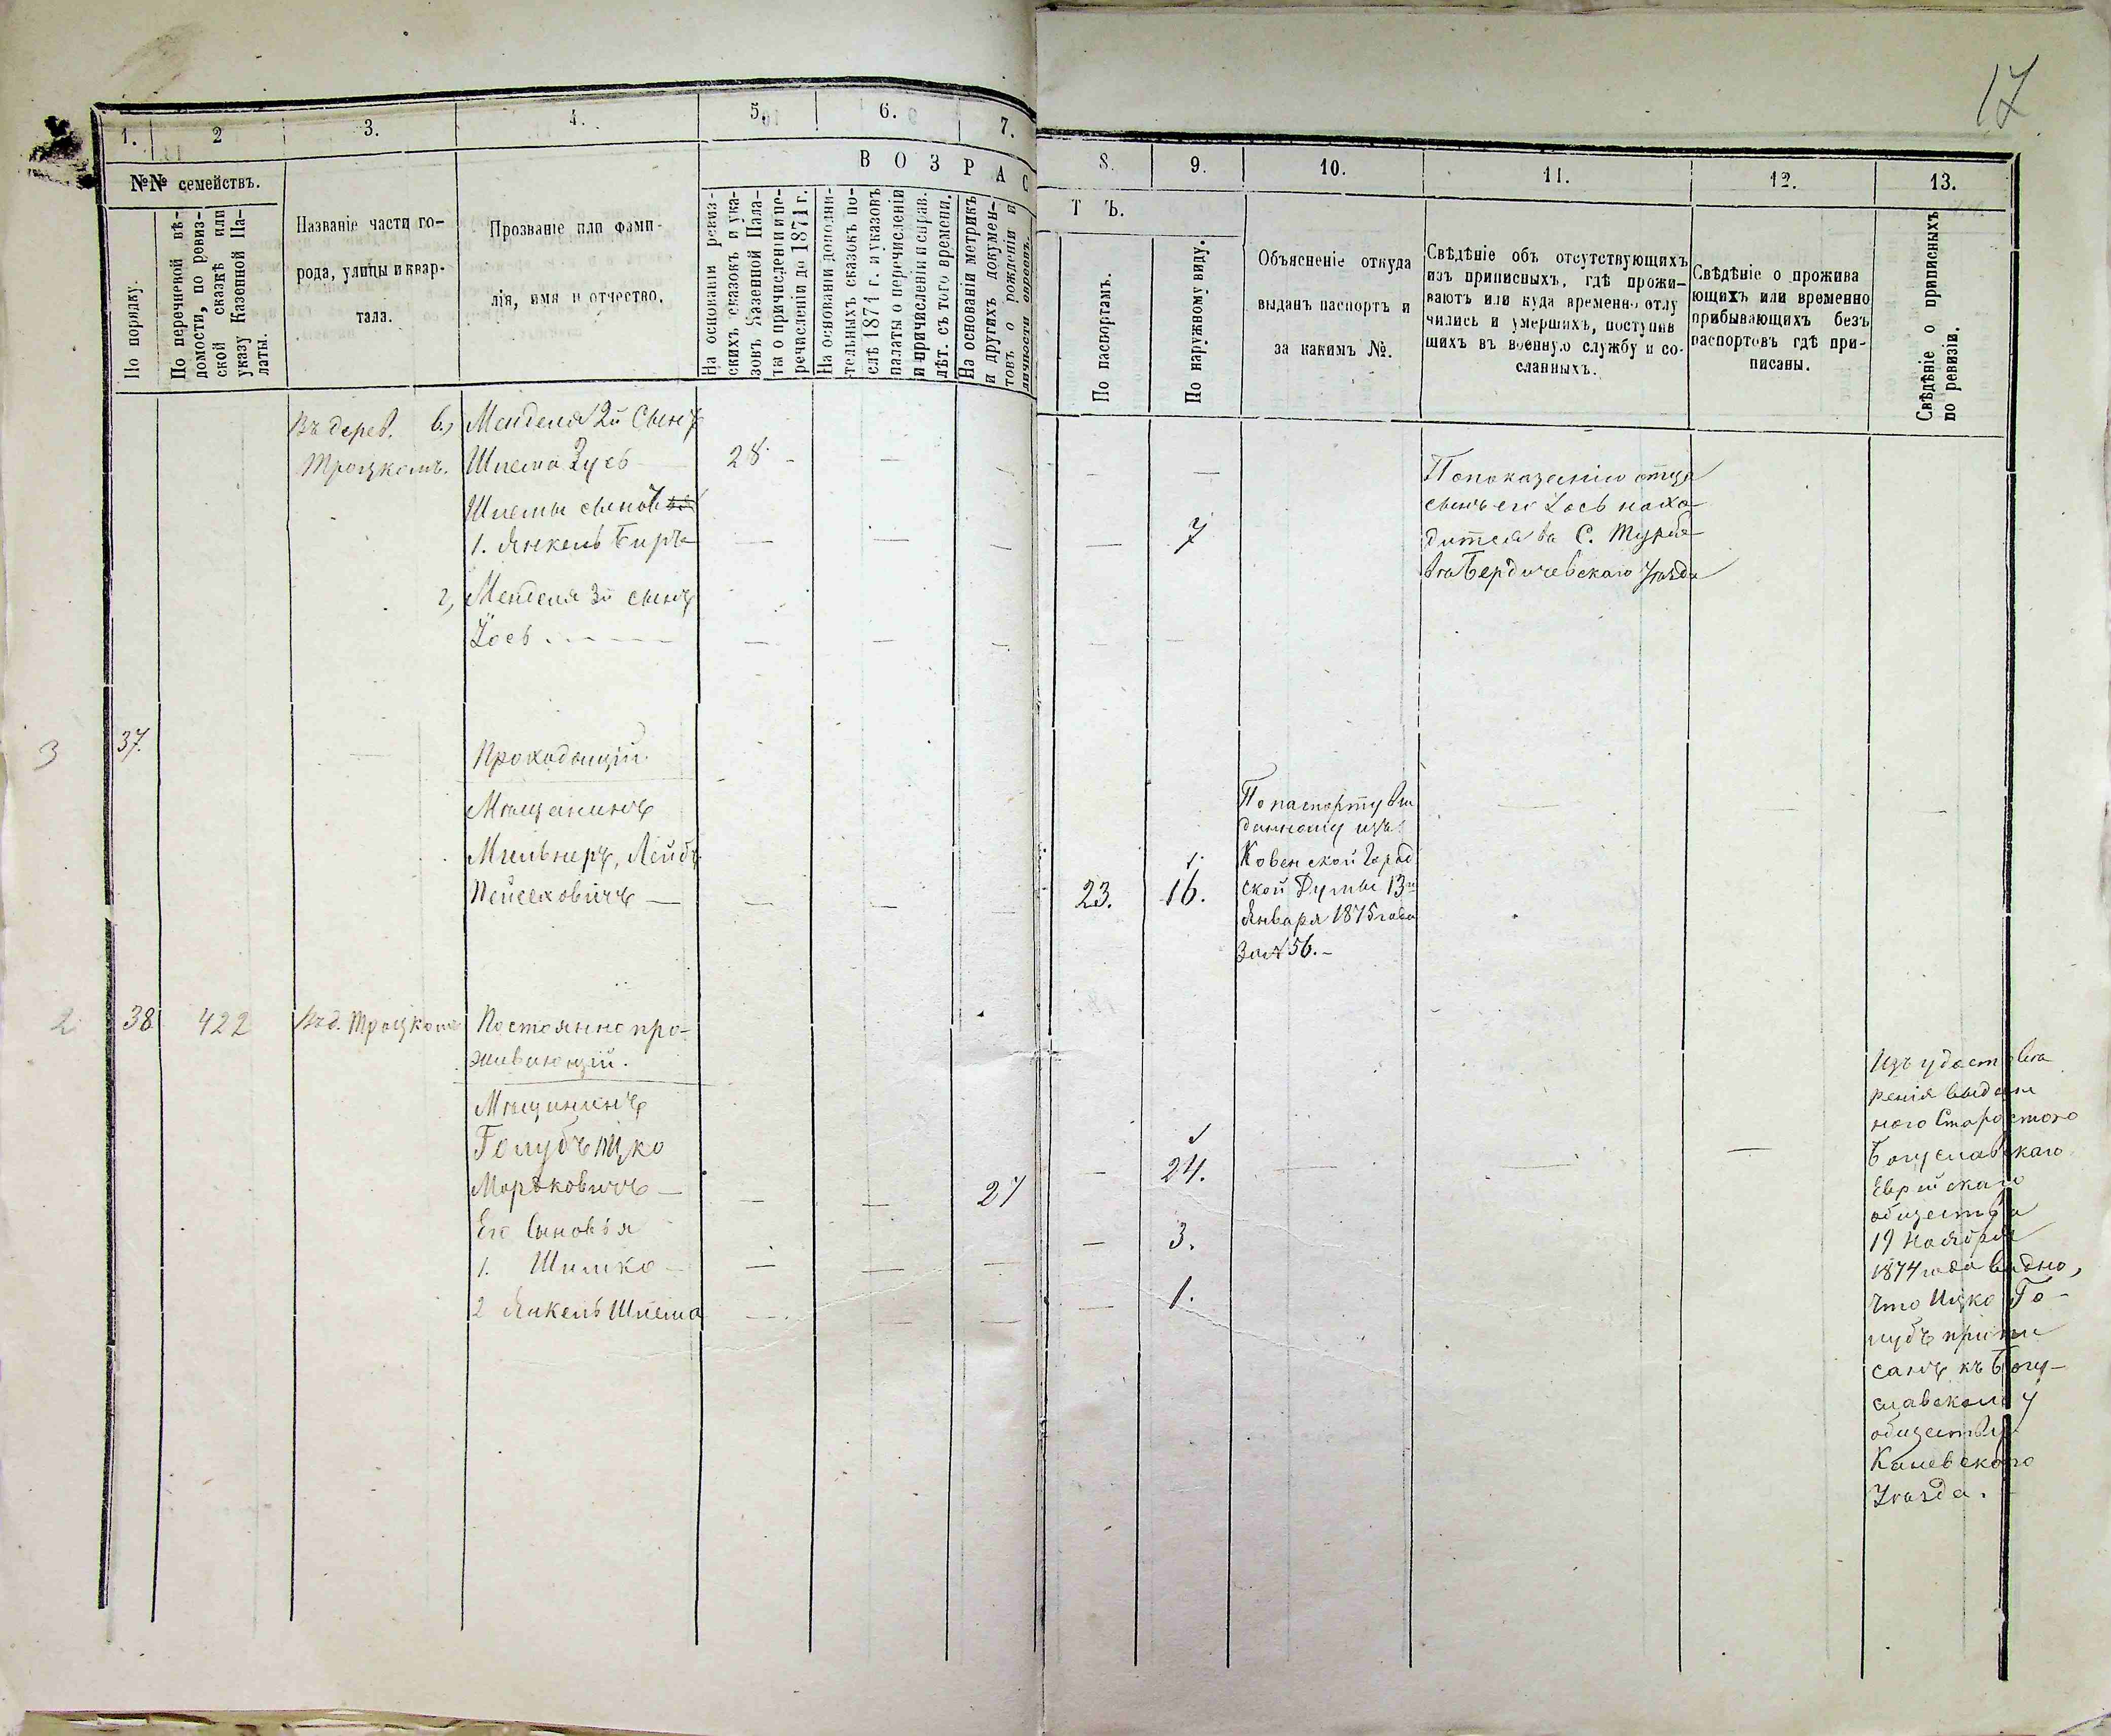 17
1. 2 3. 4. 5. 6. 7. 8. 9. 10. 11. 12. 13.
№№ семействъ.
По порядку.
По перечневой вѣ-
домости, по ревиз-
ской сказкѣ или
указу Казенной Па-
латы.
Названіе части го-
рода, улицы и квар-
тала.
Прозваніе или фами-
лія, имя и отчество.
В О З Р А С Т Ъ.
На основаніи ревиз-
скихъ сказокъ и ука-
зовъ Казенной Пала-
ты о причисленіи и пе-
речисленіи до 1871 г.
На основаніи дополни-
тельныхъ сказокъ по-
слѣ 1871 г. и указовъ
палаты о перечисленіи
и причисленіи и справ.
лѣт. съ того времени.
На основаніи метрикъ
и другихъ докумен-
товъ о рожденіи и
личности опредѣ.
По паспортамъ.
По наружному виду.
Объясненіе откуда
выданъ паспортъ и
за какимъ №.
Свѣдѣніе объ отсутствующихъ
изъ приписныхъ, гдѣ прожи-
ваютъ или куда временно отлу
чились и умершихъ, поступив
шихъ въ военную службу и со-
сланныхъ.
Свѣдѣніе о прожива
ющихъ или временно
прибывающихъ безъ
паспортовъ гдѣ при-
писаны.
Свѣдѣніе о приписныхъ
по ревизіи.
Въ дерев.
Троцкомъ.
в., Менделя 2й Сынъ
Шлема Зусь 28 -
Шлемы сынов
1. Янкель Беръ 7
г, Менделя 3й сынъ
Іось
По показанію отца
сынъ его Іось нахо
дится въ С. Турба
Бердичевскаго Уѣзда
3 37.
Проходящій
Мѣщанинъ
Мильнеръ, Лейбъ
Пейсеховичъ — 23. 16.
По паспорту вы
данному изъ
Ковенской Город
ской Думы 13го
Января 1875 года
За № 56. -
2 38 422 Въ д. Троцкомъ
Постоянно про-
живающій.
Мѣщанинъ
Голубъ Ицко
Мордковичъ — 27 24.
Его Сыновья
1. Шимко — 3.
2 Янкель Шлема 1.
Изъ удостовѣ
ренія выдан
наго Старостою
Богуславскаго
Еврейскаго
общества
19 Ноября
1874 года видно,
что Ицко Го-
лубъ припи
санъ къ Богу-
славскому
обществу
Каневскаго
Уѣзда.